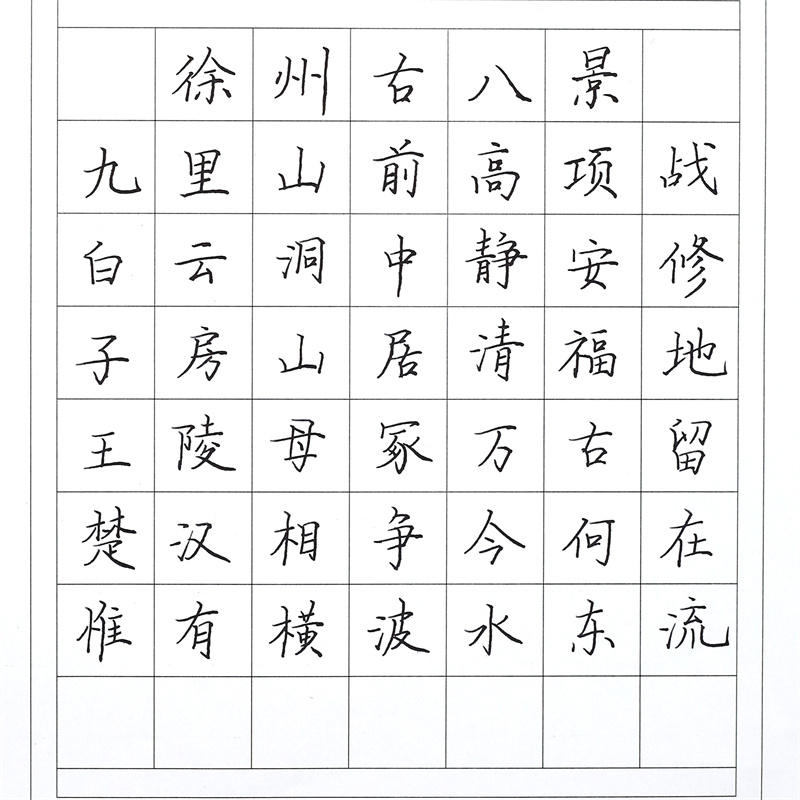 徐州古八景
九里山前高项战
白云洞中静安修
子房山居清福地
王陵母冢万古留
楚汉相争今何在
惟有横波水东流